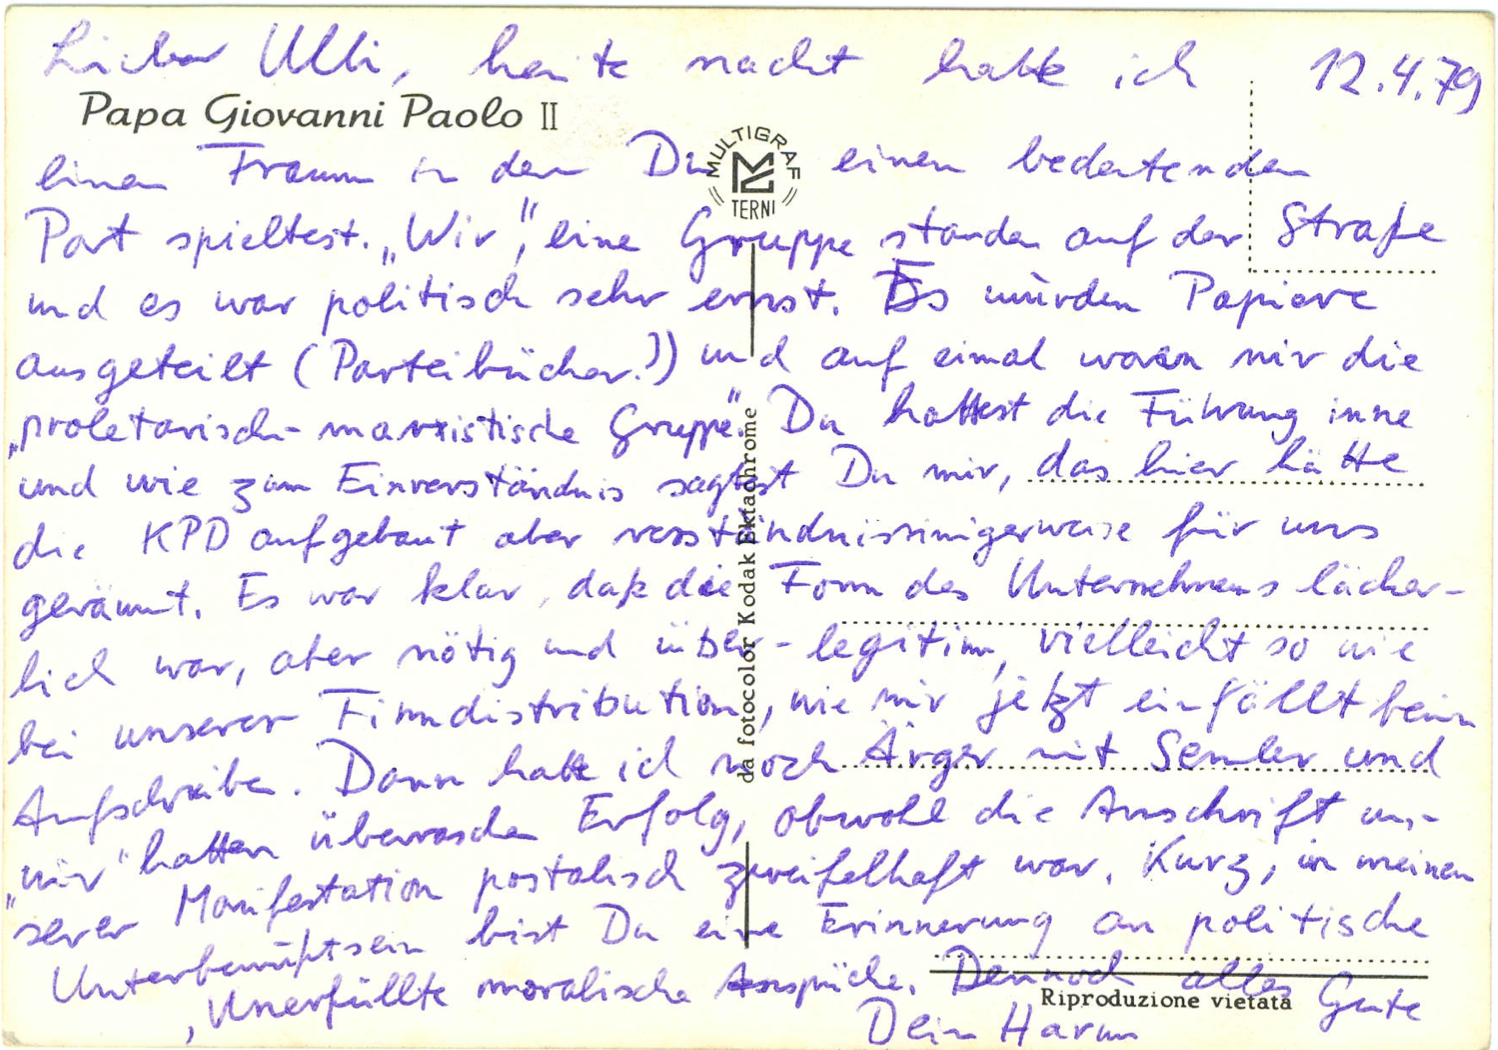 Lieber Ulli, heute nacht hatte ich 12.4.79
Papa Giovanni Paolo II
MULTIGRAF
TERNI
einen Traum in dem Du einen bedeutenden
Part spieltest. „Wir“, eine Gruppe standen auf der Straße
und es war politisch sehr ernst. Es wurden Papiere
ausgeteilt (Parteibücher!) und auf einmal waren wir die
„proletarisch-marxistische Gruppe“. Du hattest die Führung inne
und wie zum Einverständnis sagtest Du mir, das hier hätte
die KPD aufgebaut aber verständnisinnigerweise für uns
geräumt. Es war klar, daß die Form des Unternehmens lächer-
lich war, aber nötig und über-legitim, vielleicht so wie
bei unserer Filmdistribution, wie mir jetzt einfällt beim
Aufschreiben. Dann hatte ich noch Ärger mit Semler und
„wir“ hatten überraschen Erfolg, obwohl die Anschrift un-
serer Manifestation postalisch zweifelhaft war. Kurz, in meinem
Unterbewußtsein bist Du eine Erinnerung an politische
, Unerfüllte moralische Ansprüche. Dennoch alles Gute
Dein Harun
da fotocolor Kodak Ektachrome
Riproduzione vietata